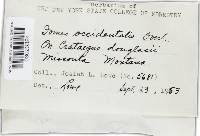 Herbarium of
THE NEW YORK STATE COLLEGE OF FORESTRY
Fomes occidentalis
On Crataegus douglasii
Missoula Montana
Coll. Josiah L. Lowe (No. 5681)
Det. Lowe Sept. 23, 1953